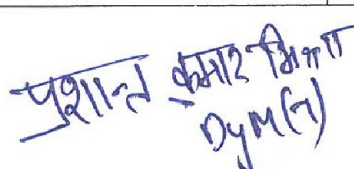 प्रशान्त कुमार मिश्रा
DyM(न)